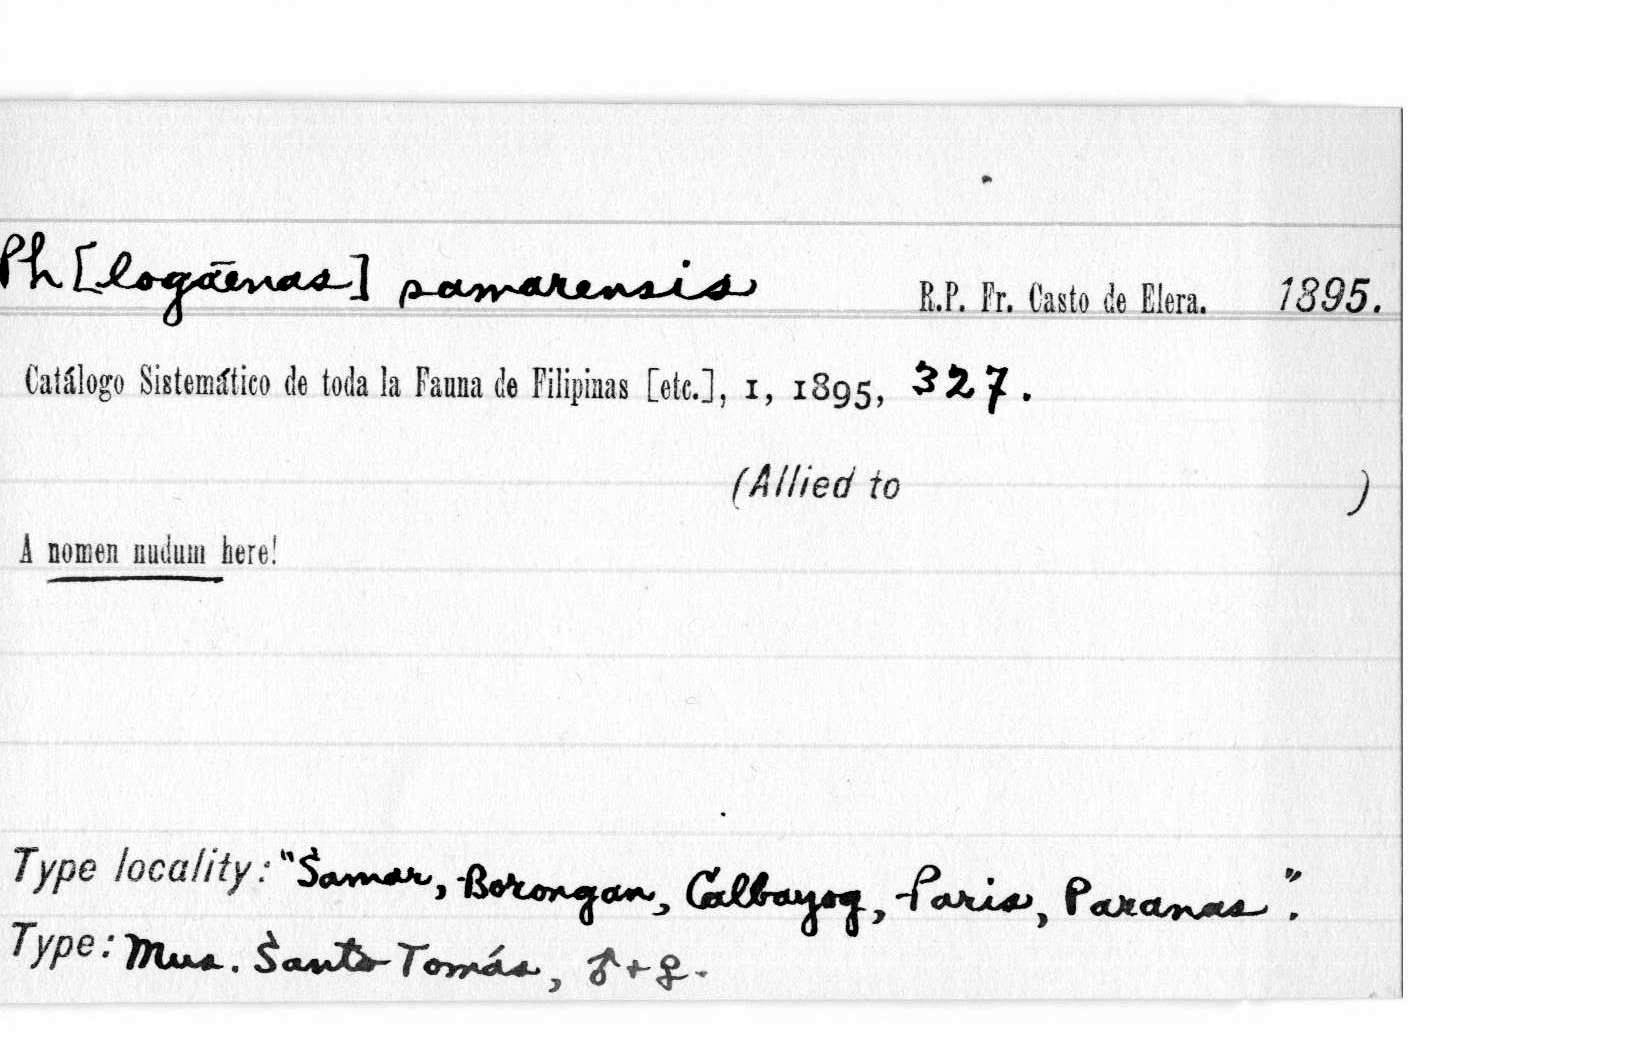 Ph[logaenas] samarensis R.P. Fr. Casto de Elera. 1895.
Catálogo Sistemático de toda la Fauna de Filipinas [etc.], 1, 1895, 327.
(Allied to )
A nomen nudum here!
Type locality: "Samar, Borongan, Calbayog, Paris, Paranas".
Type: Mus. Santo Tomás, ♂+♀.